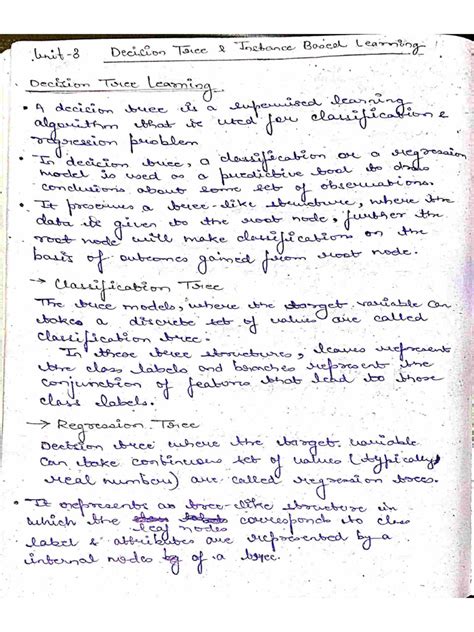 Unit-3 Decision Tree & Instance Based Learning
Decision Tree Learning
• A decision tree is a supervised learning
algorithm that is used for classification &
regression problem
• In decision tree, a classification or a regression
model is used as a predictive tool to draw
conclusions about some set of observations.
• It presumes a tree-like structure, where the
data is given to the root node, further the
root node will make classification on the
basis of outcomes gained from root node.
→ Classification Tree
The tree models, where the target variable can
takes a discrete set of values are called
classification tree.
In these tree structures, leaves represent
the class labels and branches represent the
conjunction of features that lead to those
class labels.
→ Regression Tree
Decision tree where the target variable
can take continuous set of values (typically
real numbers) are called regression trees.
• It expresses as tree-like structure in
which the leaf nodes corresponds to class
label & attributes are represented by a
internal nodes of a tree.